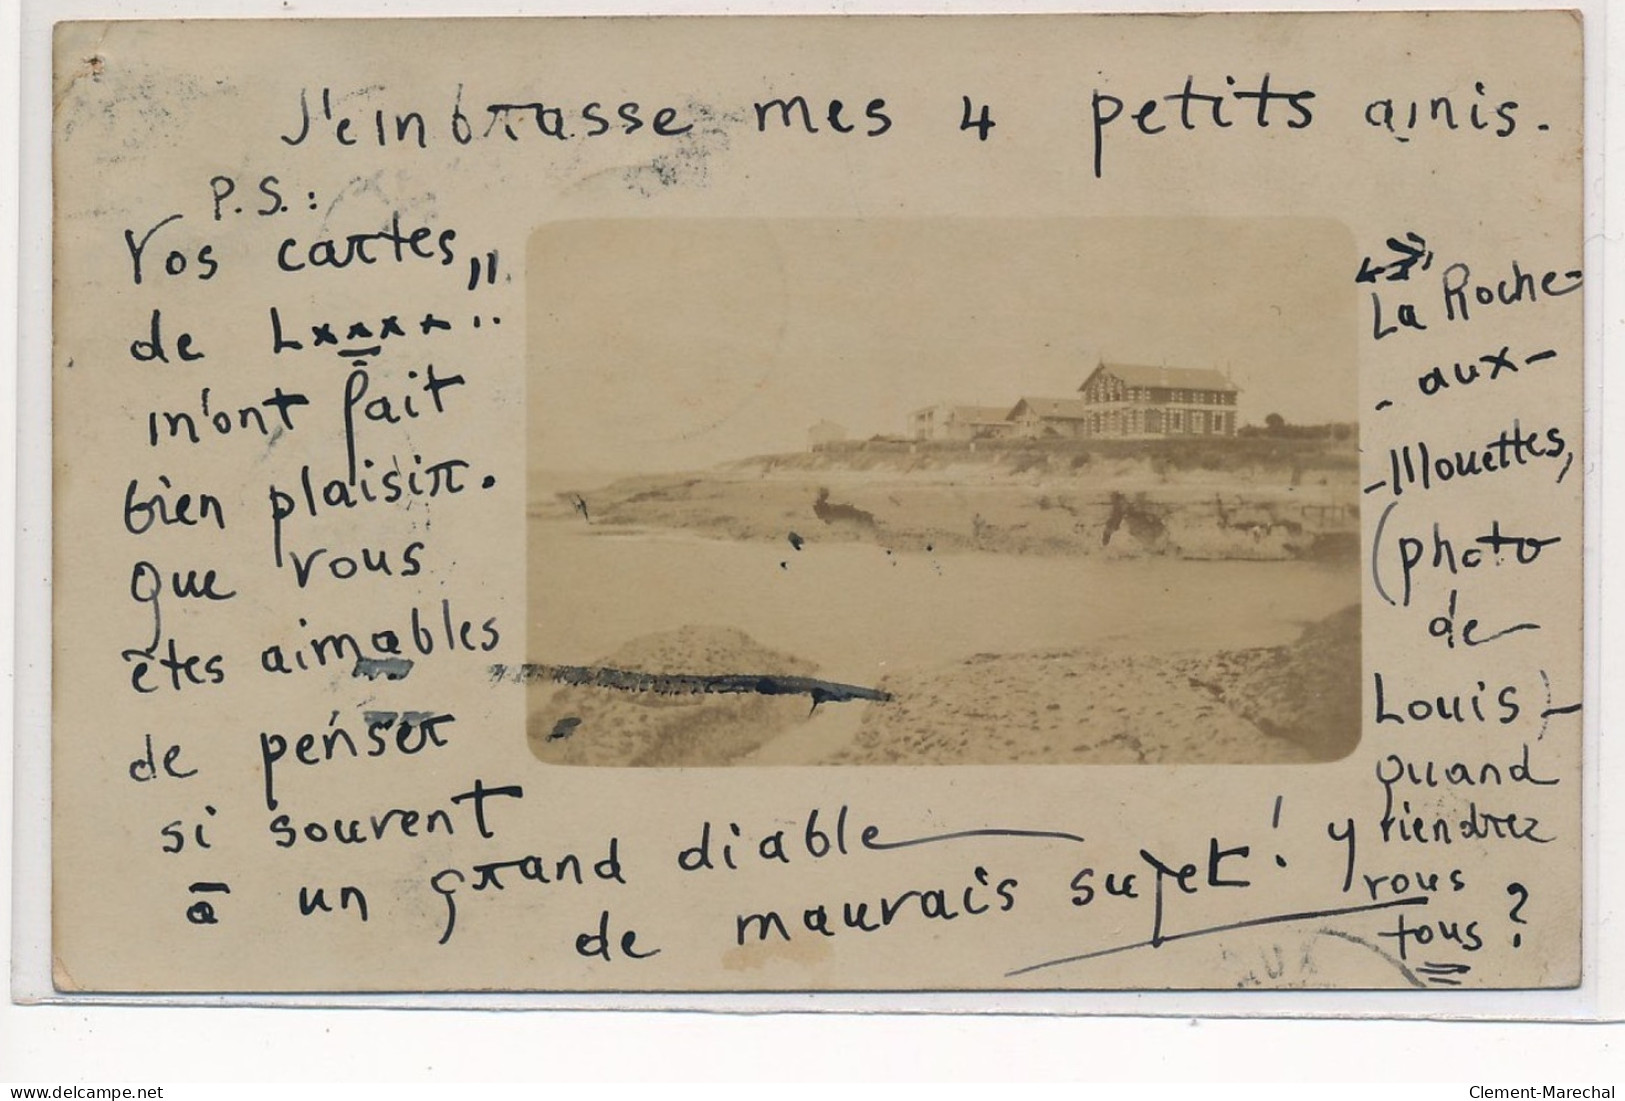 J'embrasse mes 4 petits amis.
P.S.:
Vos cartes,,
de Lxxxx..
m'ont fait
bien plaisir.
Que vous
êtes aimables
de penser
si souvent
à un grand diable
de mauvais sujet!
La Roche-
-aux-
-Mouettes,
(photo
de
Louis)-
quand
y viendrez
vous
tous?
www.delcampe.net
Clement-Marechal